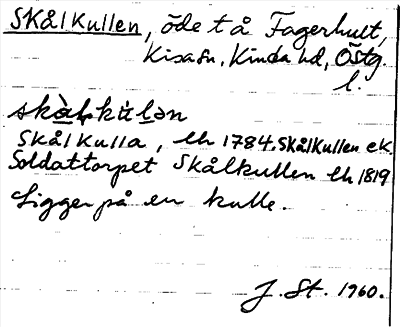 Skålkullen, öde t å Fagerhult,
Kisa sn, Kinda hd, Östg.
l.
skàlkùlən
Skålkulla, lh 1784. Skålkullen ek.
Soldattorpet Skålkullen lh 1819
Ligger på en kulle.
J. St. 1960.